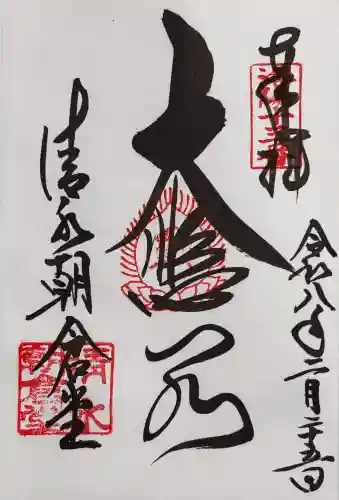 奉拝
令和八年二月二十五日
大悲閣
清水朝倉堂